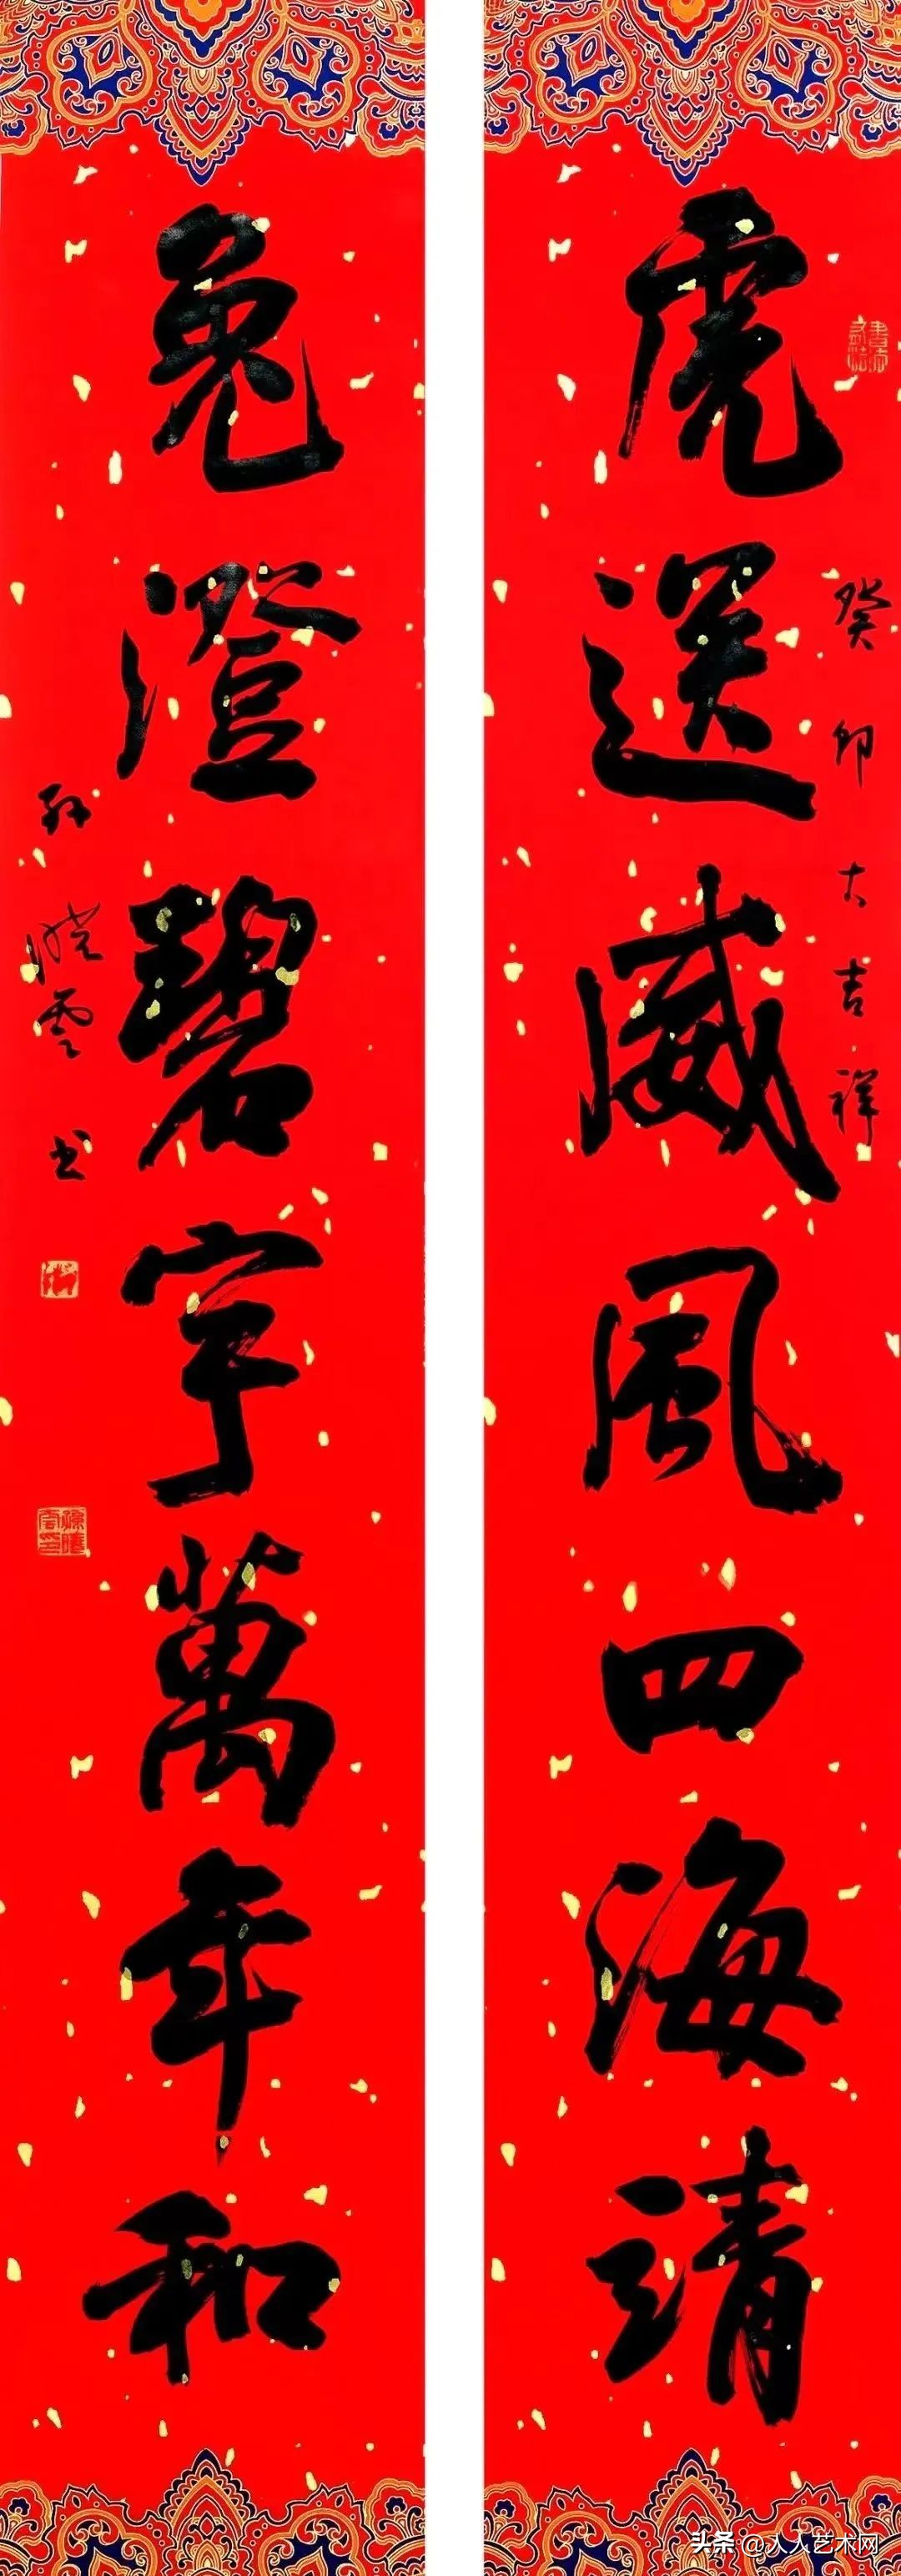 虎送威風四海靖
癸卯大吉祥
兔澄碧宇萬年和
孫曉雲书
头条 @人人艺术网